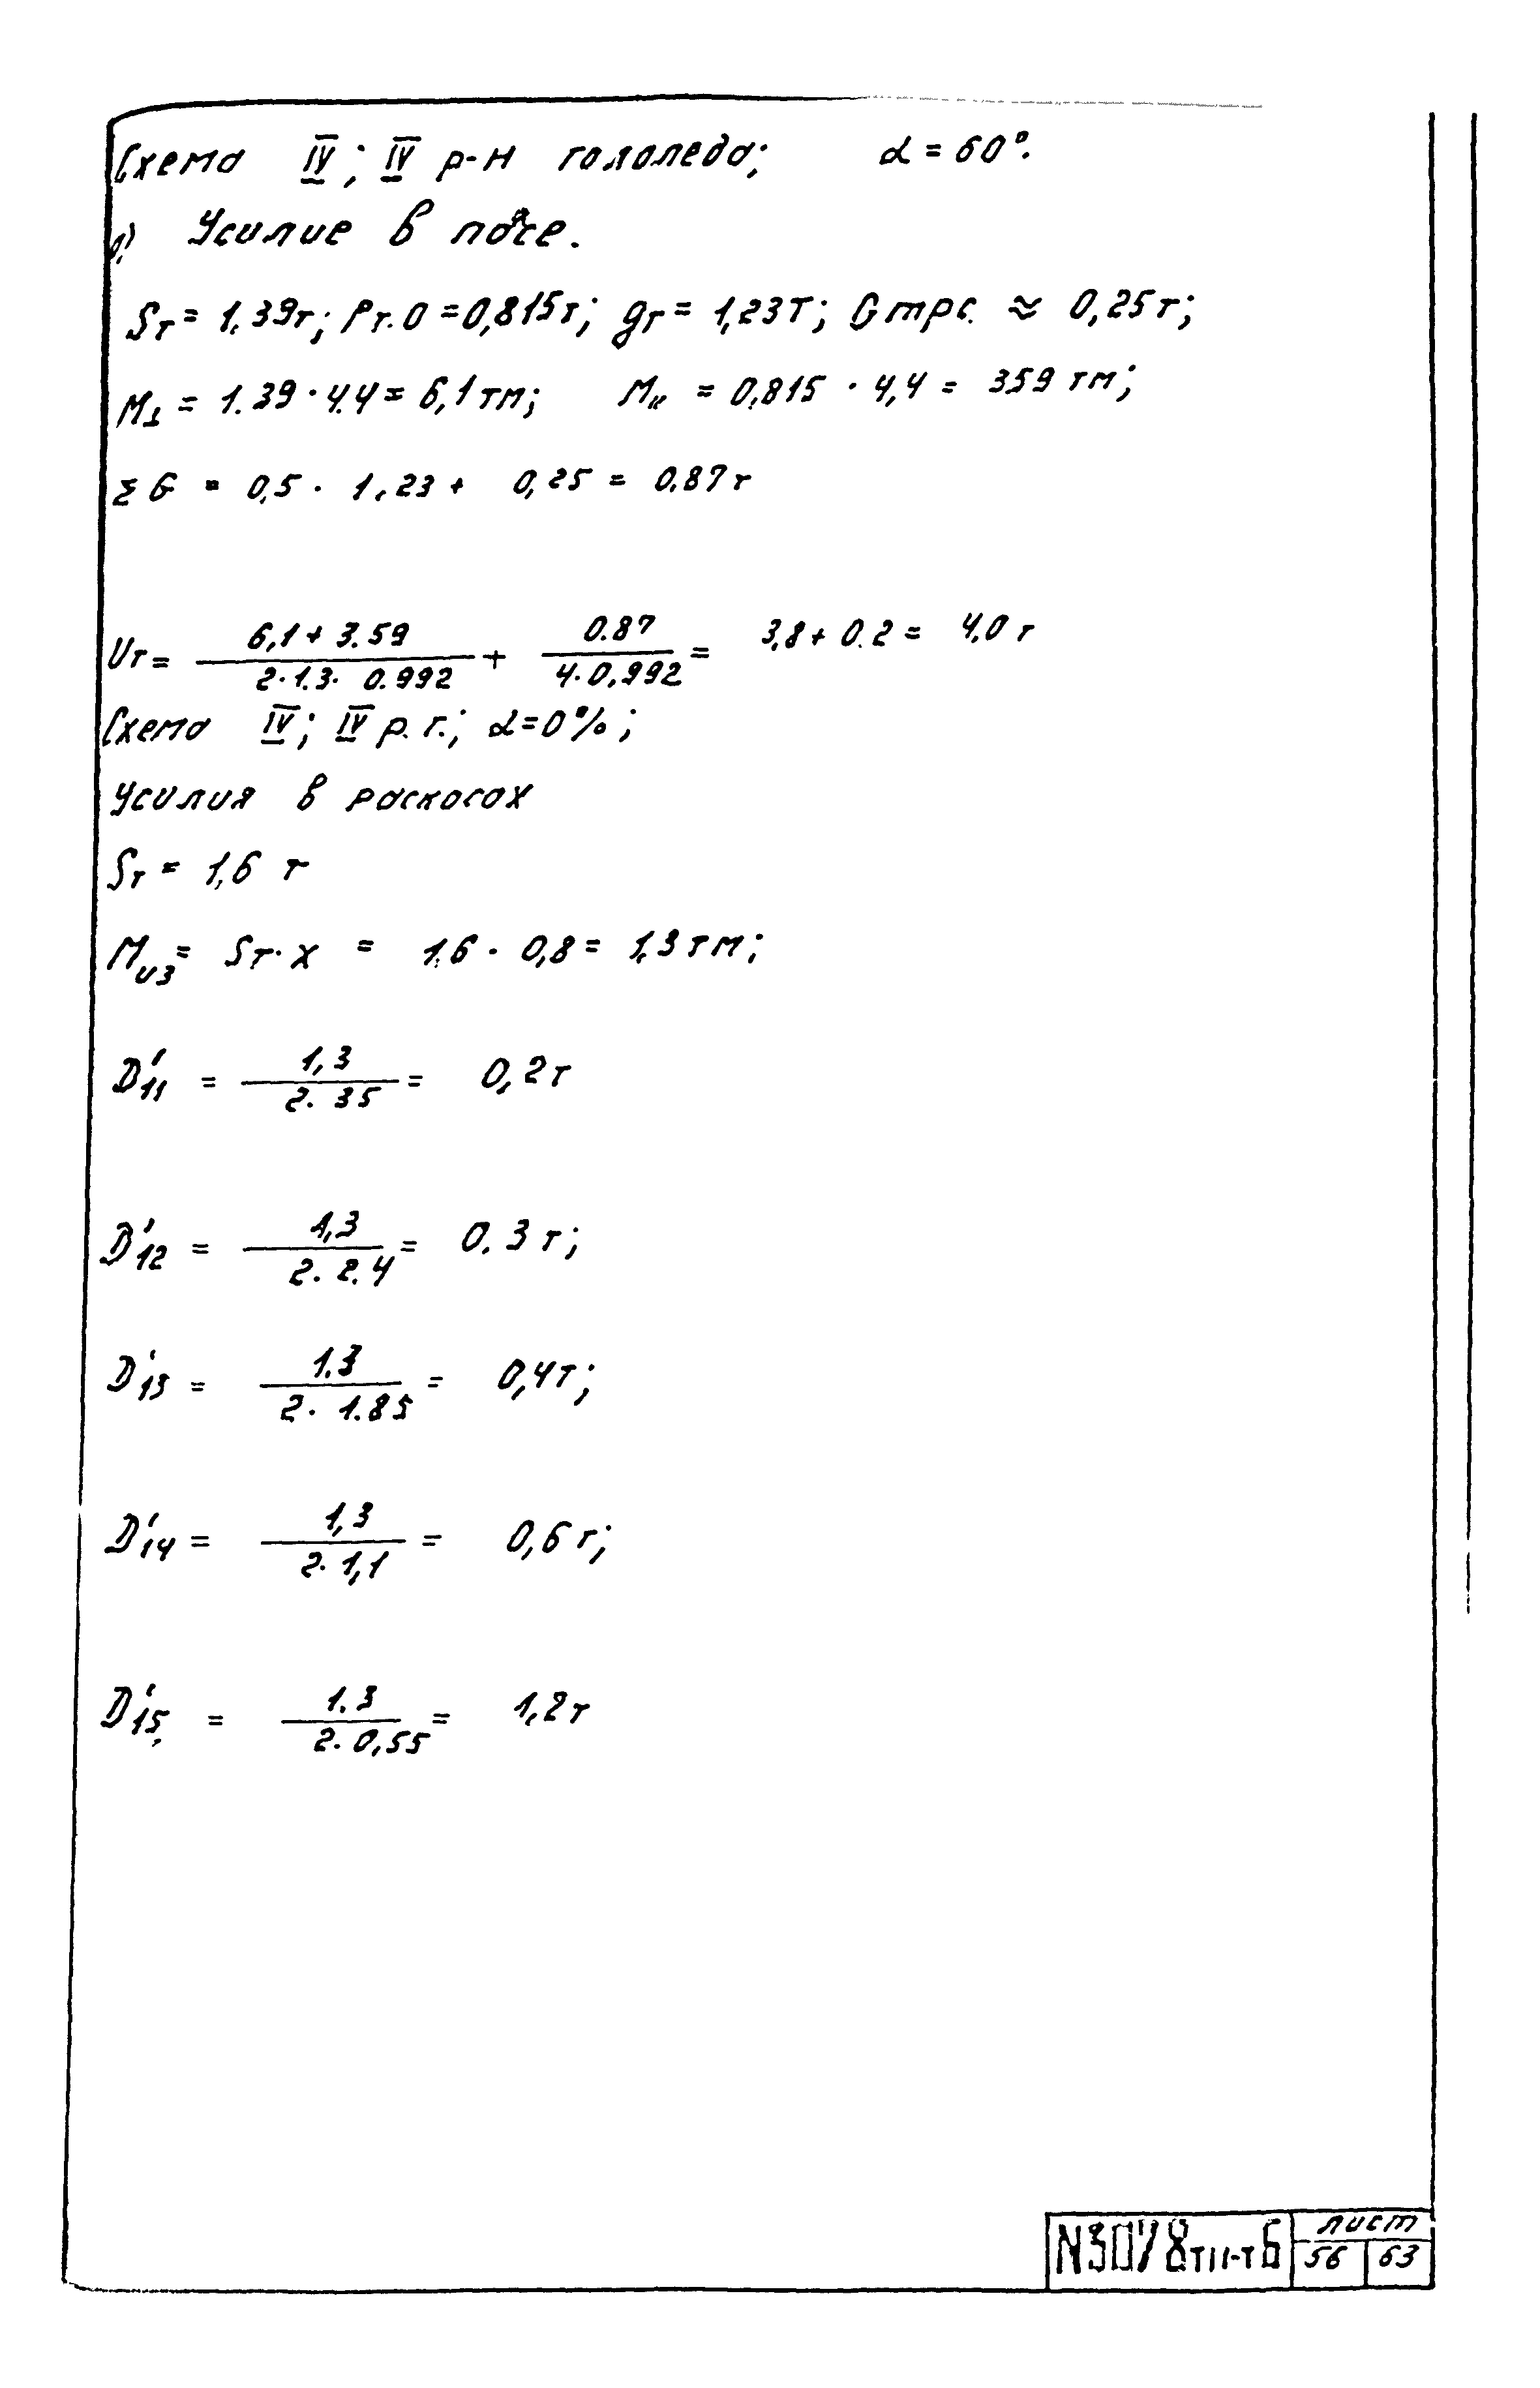 Схема IV; IV р-н гололеда; α = 60°.
а) Усилие в поясе.
Sт = 1.39т; Pт.о = 0,815т; gт = 1,23т; Gтрс. ≈ 0,25т;
M⊥ = 1.39 · 4.4 = 6,1 тм; M״ = 0,815 · 4,4 = 3.59 тм;
Σ G = 0,5 · 1,23 + 0,25 = 0.87 т
Uт = (6,1 + 3.59)/(2 · 1.3 · 0.992) + 0.87/(4 · 0,992) = 3,8 + 0.2 = 4,0 т
Схема IV; IV р. г.; α = 0%;
Усилия в раскосах
Sт = 1,6 т
Mиз = Sт · x = 1.6 · 0,8 = 1,3 тм;
D'11 = 1,3/(2 · 35) = 0,2т
D'12 = 1,3/(2 · 2.4) = 0.3 т;
D'13 = 1.3/(2 · 1.85) = 0,4т;
D'14 = 1,3/(2 · 1,1) = 0,6 т;
D'15 = 1.3/(2 · 0,55) = 1,2т
N3078тп-т6 лист
56 63